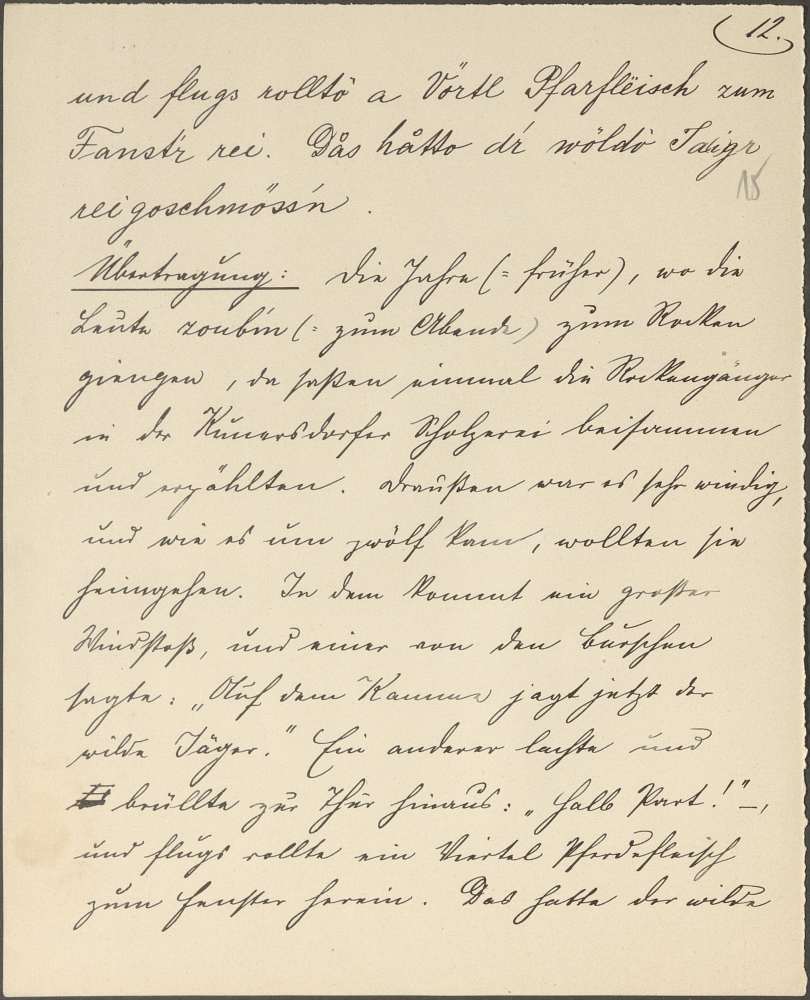 12.
und flugs rolltŏ a Vörtl Pfarflëisch zum
Fanst'r rei. Dås håtto d'r wöldŏ Jaigr
15
reigoschmöss'n.
Übertragung: Die Jahre (= früher), wo die
Leute zoub'm (= zum Abende) zum Rocken
giengen, da saßen einmal die Rockengänger
in der Kunersdorfer Scholzerei beisammen
und erzählten. Draußen war es sehr windig,
und wie es um zwölf kam, wollten sie
heimgehen. In dem kommt ein großer
Windstoß, und einer von den Burschen
sagte: „Auf dem Kamme jagt jetzt der
wilde Jäger." Ein anderer lachte und
brüllte zur Thür hinaus: „Halb Part!" –,
und flugs rollte ein Viertel Pferdefleisch
zum Fenster herein. Das hatte der wilde